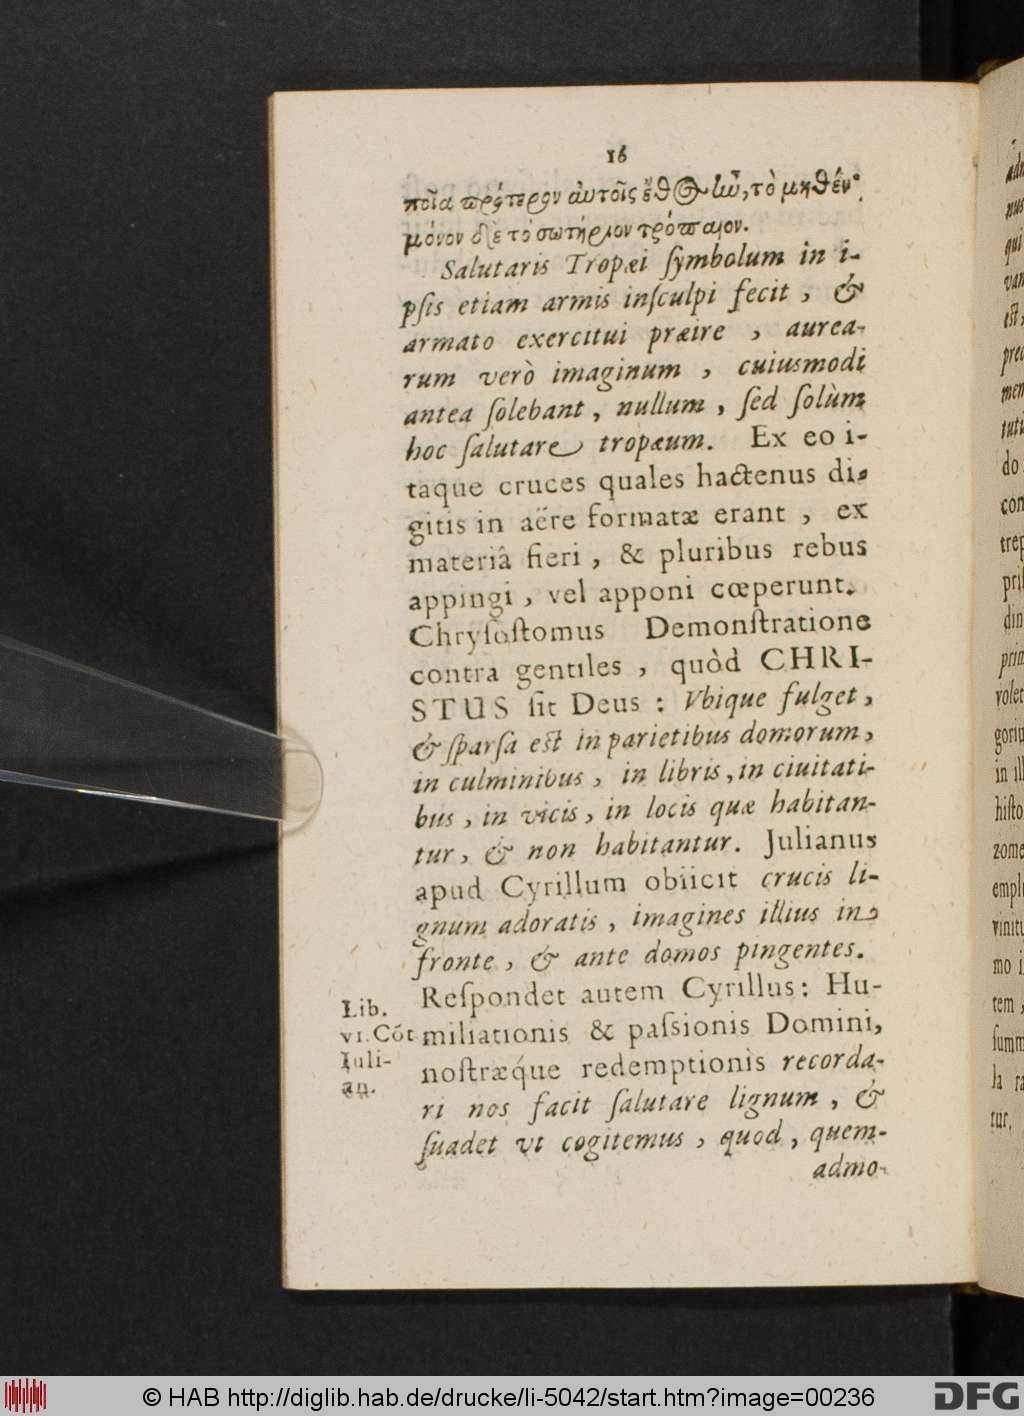 16
ποῖα πρότερον αὐτοῖς ἔθος ἦν, τὸ μηθὲν·
μόνον δὲ τὸ σωτήριον τρόπαιον.
Salutaris Tropæi ſymbolum in i-
pſis etiam armis inſculpi fecit, &
armato exercitui præire, aurea-
rum verò imaginum, cuiusmodi
antea ſolebant, nullum, ſed ſolùm
hoc ſalutare tropæum. Ex eo i-
taque cruces quales hactenus di-
gitis in aëre formatæ erant, ex
materiâ fieri, & pluribus rebus
appingi, vel apponi cœperunt.
Chryſoſtomus Demonſtratione
contra gentiles, quòd CHRI-
STUS ſit Deus: Vbique fulget,
& ſparſa eſt in parietibus domorum,
in culminibus, in libris, in ciuitati-
bus, in vicis, in locis quæ habitan-
tur, & non habitantur. Julianus
apud Cyrillum obiicit crucis li-
gnum adoratis, imagines illius in
fronte, & ante domos pingentes.
Reſpondet autem Cyrillus: Hu-
miliationis & paſsionis Domini,
noſtræq́ue redemptionis recorda-
ri nos facit ſalutare lignum, &
ſuadet vt cogitemus, quod, quem-
admo-
Lib.
VI. Cõt
Iuli-
an.
© HAB http://diglib.hab.de/drucke/li-5042/start.htm?image=00236
DFG